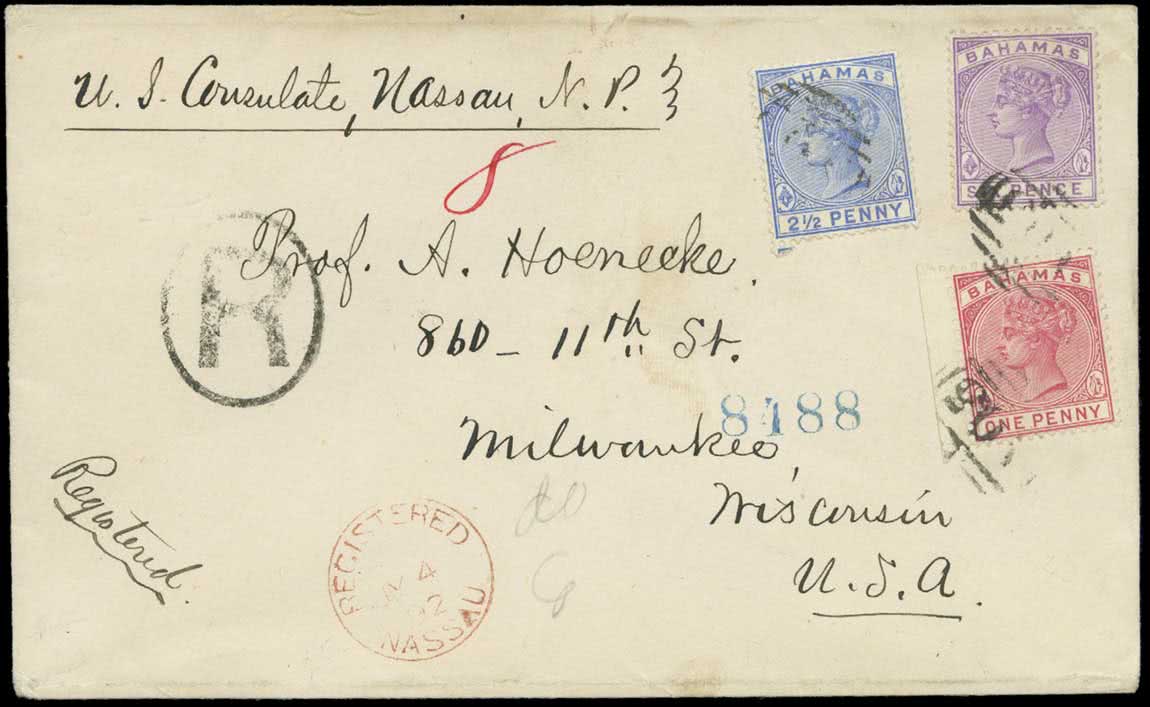 U. S. Consulate, Nassau, N. P.
8
BAHAMAS
2½ PENNY
BAHAMAS
SIX PENCE
BAHAMAS
ONE PENNY
R
Prof. A. Hoenecke.
860 - 11th St.
8188
Milwaukee,
Wisconsin
U.S.A.
Registered.
REGISTERED
4
92
NASSAU